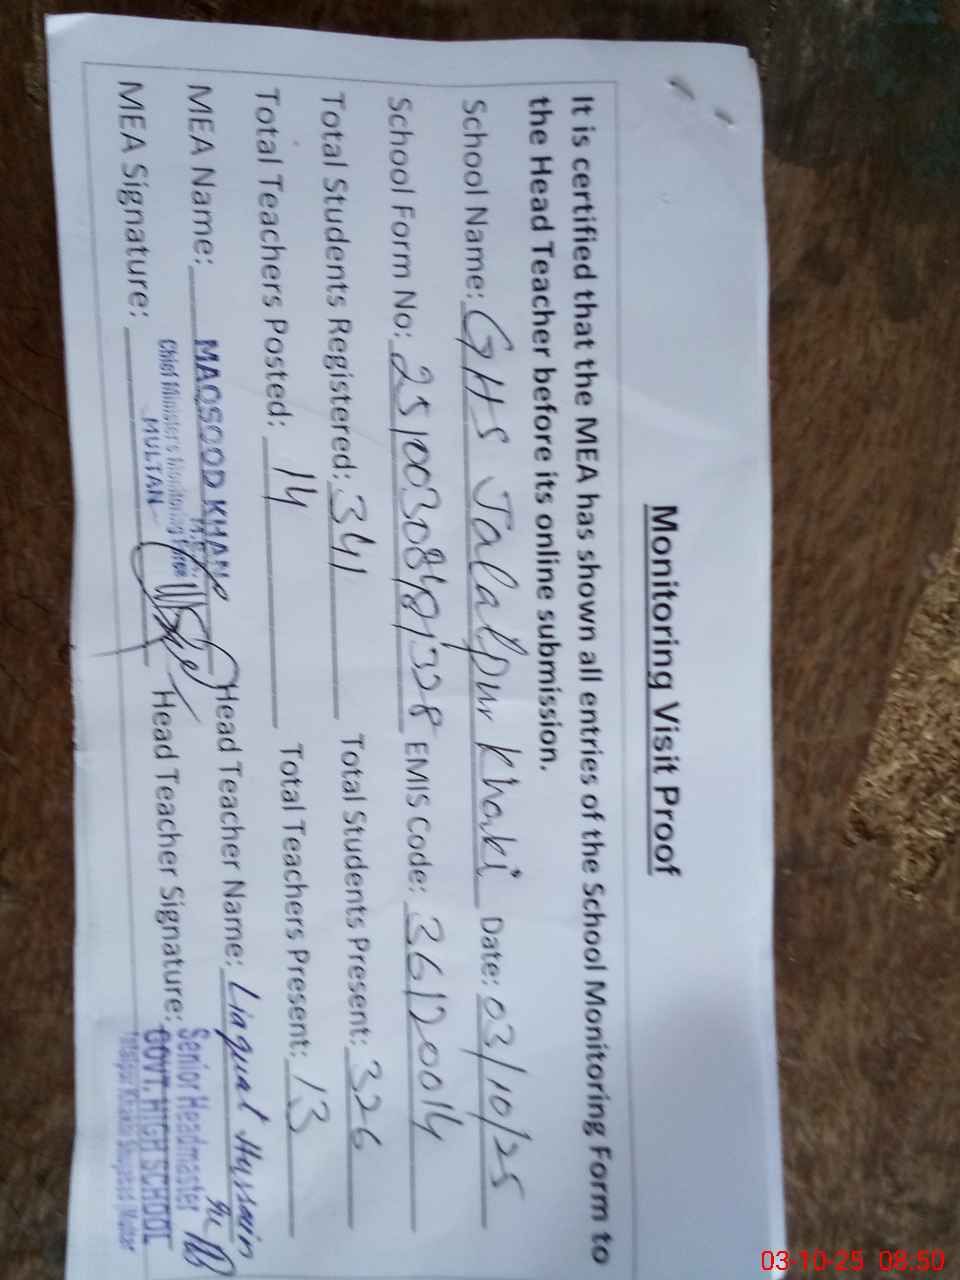 Monitoring Visit Proof
It is certified that the MEA has shown all entries of the School Monitoring Form to
the Head Teacher before its online submission.
School Name: GHS Jalalpur Khaki Date: 03/10/25
School Form No: 25100308481328 EMIS Code: 36120014
Total Students Registered: 341 Total Students Present: 326
Total Teachers Posted: 14 Total Teachers Present: 13
MEA Name: MAQSOOD KHAN Head Teacher Name: Liaquat Hussain
M.E.A
Chief Minister's Monitoring Force
MULTAN
MEA Signature: Head Teacher Signature:
Senior Headmaster
GOVT. HIGH SCHOOL
Jalalpur Khaki Shujabad Multan
03-10-25 08:50